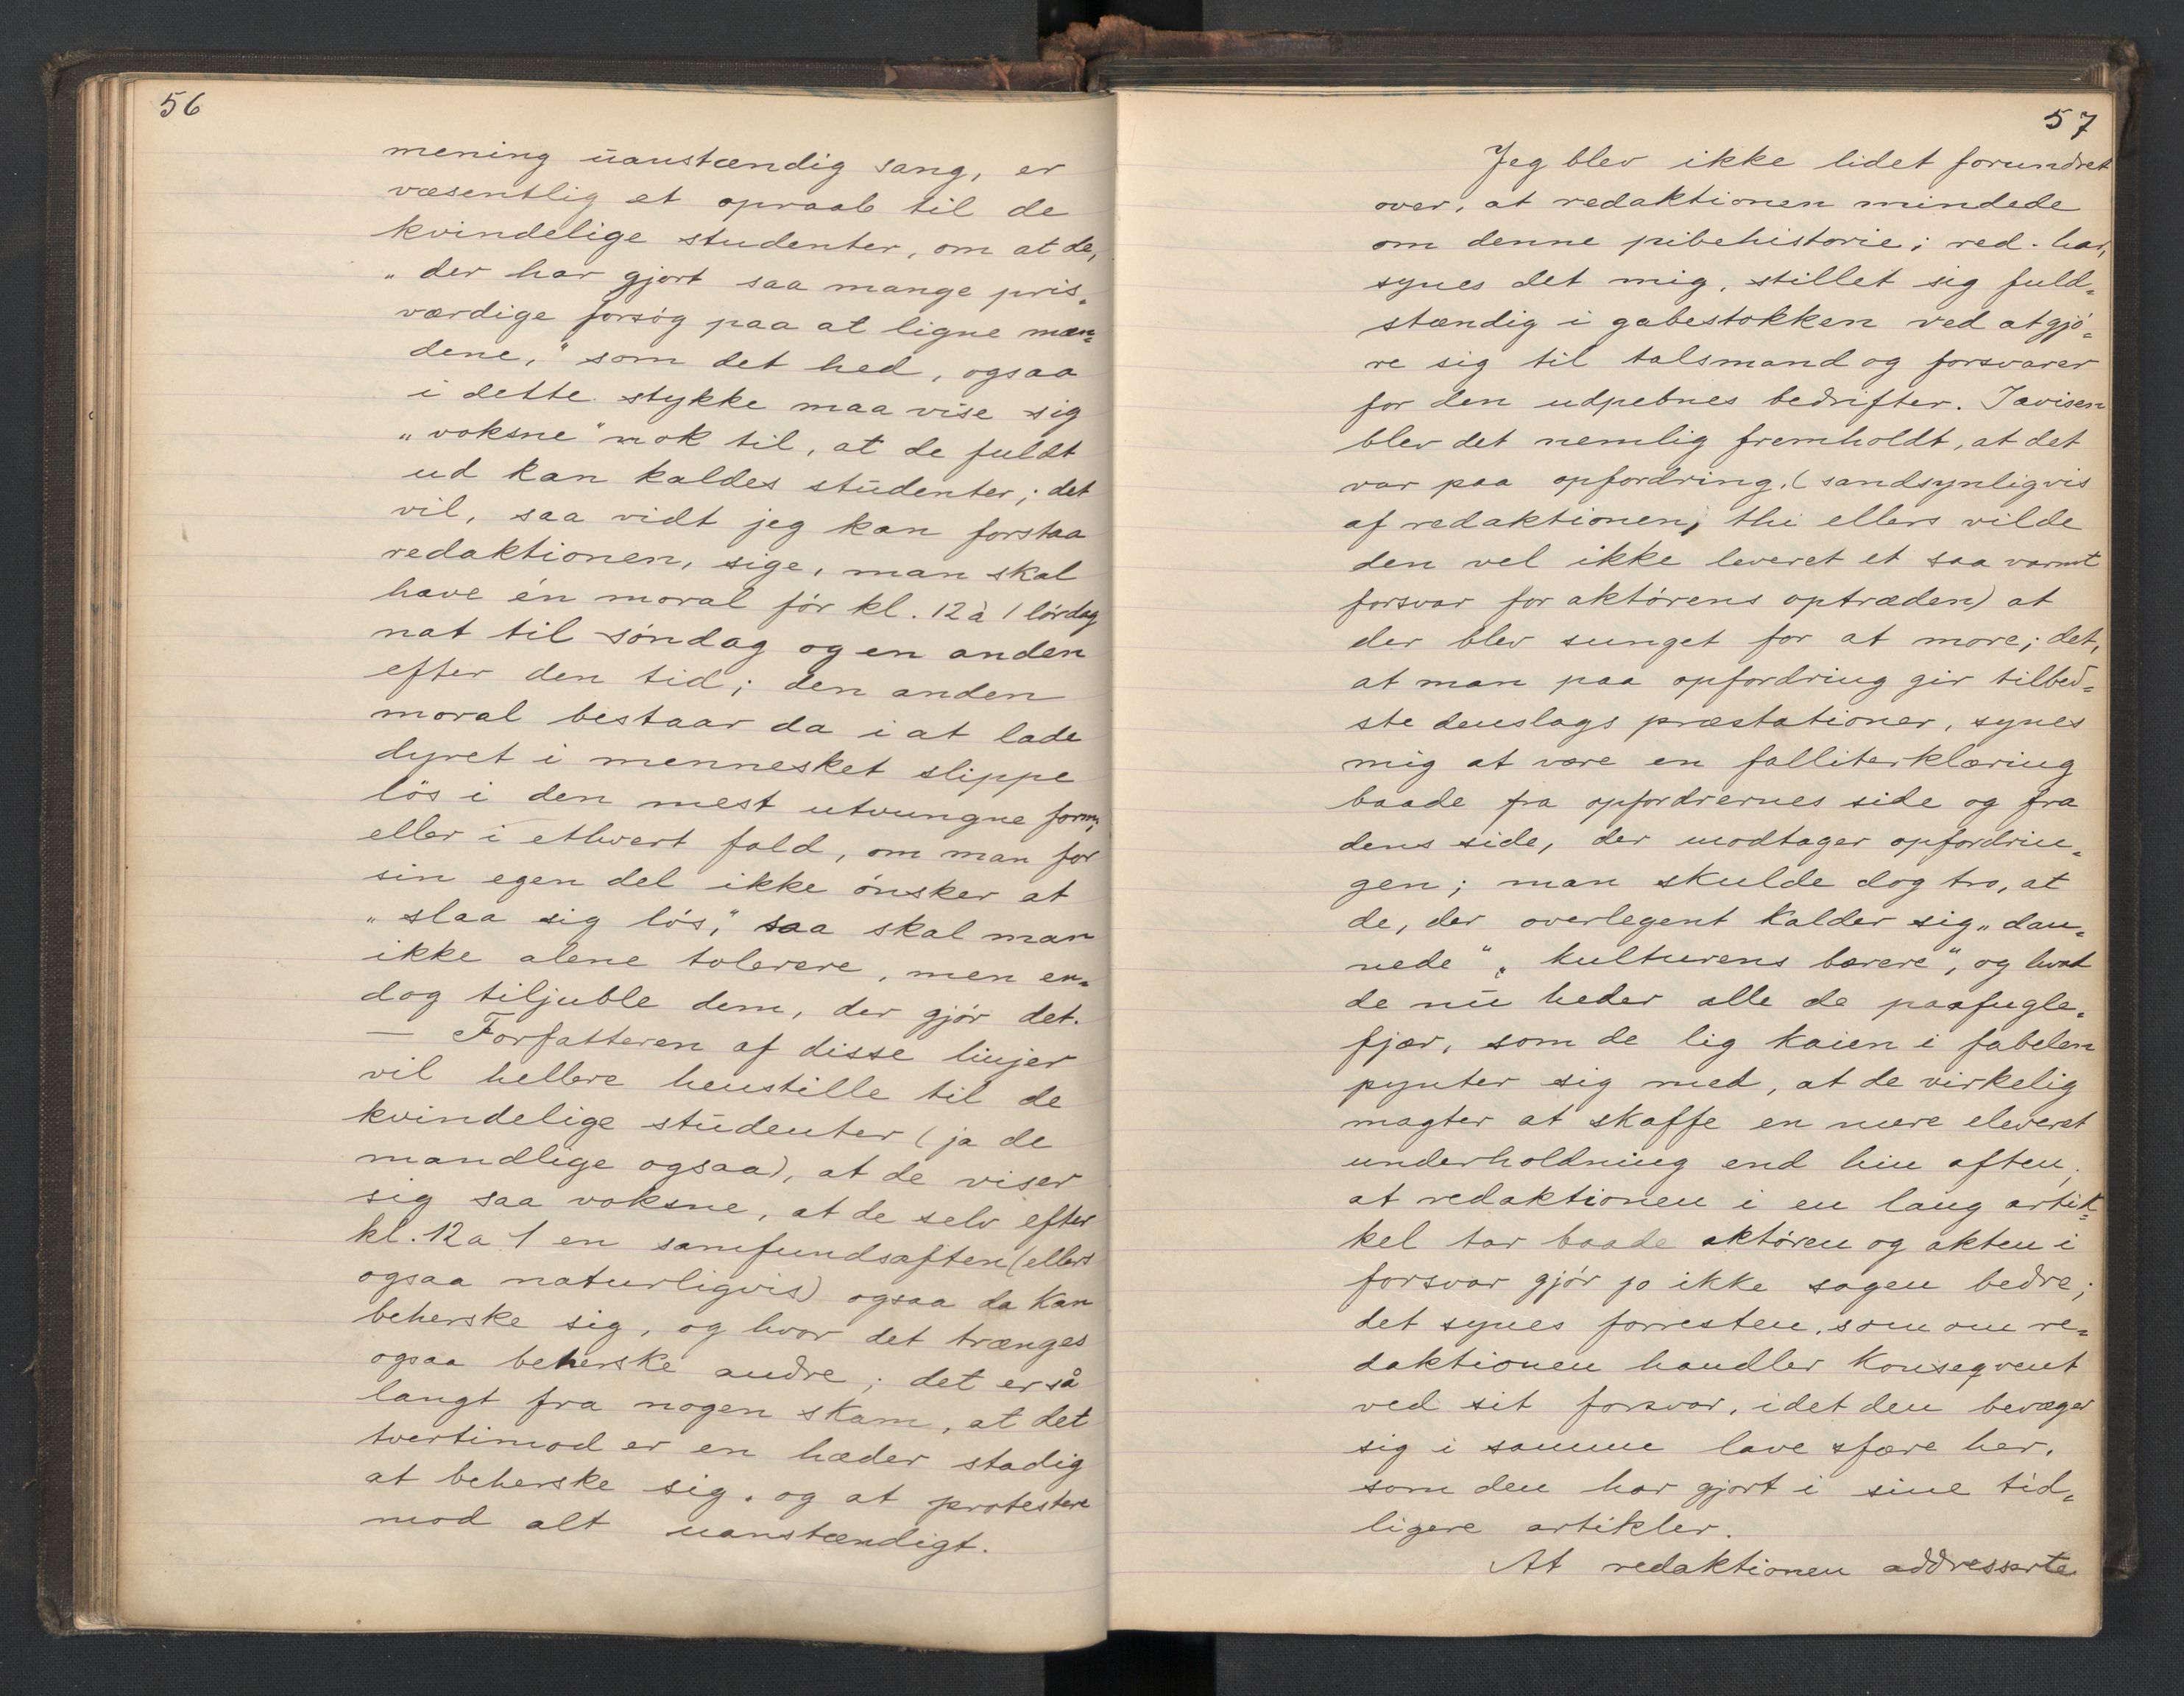 56
mening uanstændig sang, er
væsentlig et opraab til de
kvindelige studenter, om at de,
„der har gjort saa mange pris-
værdige forsøg paa at ligne mæn-
dene,“ som det hed, ogsaa
i dette stykke maa vise sig
„voksne“ nok til, at de fuldt
ud kan kaldes studenter; det
vil, saa vidt jeg kan forstaa
redaktionen, sige, man skal
have én moral før kl. 12 à 1 lørdag
nat til søndag og en anden
efter den tid; den anden
moral bestaar da i at lade
dyret i mennesket slippe
løs i den mest utvungne form;
eller i ethvert fald, om man for
sin egen del ikke ønsker at
„slaa sig løs,“ saa skal man
ikke alene tolerere, men en-
dog tiljuble dem, der gjør det.
— Forfatteren af disse linjer
vil hellere henstille til de
kvindelige studenter (ja de
mandlige ogsaa), at de viser
sig saa voksne, at de selv efter
kl. 12 a 1 en samfundsaften (ellers
ogsaa naturligvis) ogsaa da kan
beherske sig, og hvor det trænges
ogsaa beherske andre; det er så
langt fra nogen skam, at det
tvertimod er en hæder stadig
at beherske sig, og at protestere
mod alt uanstændigt.
57
Jeg blev ikke lidet forundret
over, at redaktionen mindede
om denne pibehistorie; red. har,
synes det mig, stillet sig fuld-
stændig i gabestokken ved at gjø-
re sig til talsmand og forsvarer
for den udpebnes bedrifter. I avisen
blev det nemlig fremholdt, at det
var paa opfordring, (sandsynligvis
af redaktionen, thi ellers vilde
den vel ikke leveret et saa varmt
forsvar for aktørens optræden) at
der blev sunget for at more; det,
at man paa opfordring gir tilbed-
ste denslags præstationer, synes
mig at være en falliterklæring
baade fra opfordrernes side og fra
dens side, der modtager opfordrin-
gen; man skulde dog tro, at
de, der overlegent kalder sig „dan-
nede“, „kulturens bærere“, og hvad
de nu heder alle de paafugle-
fjær, som de lig kaien i fabelen
pynter sig med, at de virkelig
magter at skaffe en mere eleveret
underholdning end hin aften,
at redaktionen i en lang artik-
kel tar baade aktøren og akten i
forsvar gjør jo ikke sagen bedre;
det synes forresten, som om re-
daktionen handler konseqvent
ved sit forsvar, idet den bevæger
sig i samme lave sfære her,
som den har gjort i sine tid-
ligere artikler.
At redaktionen addresserte